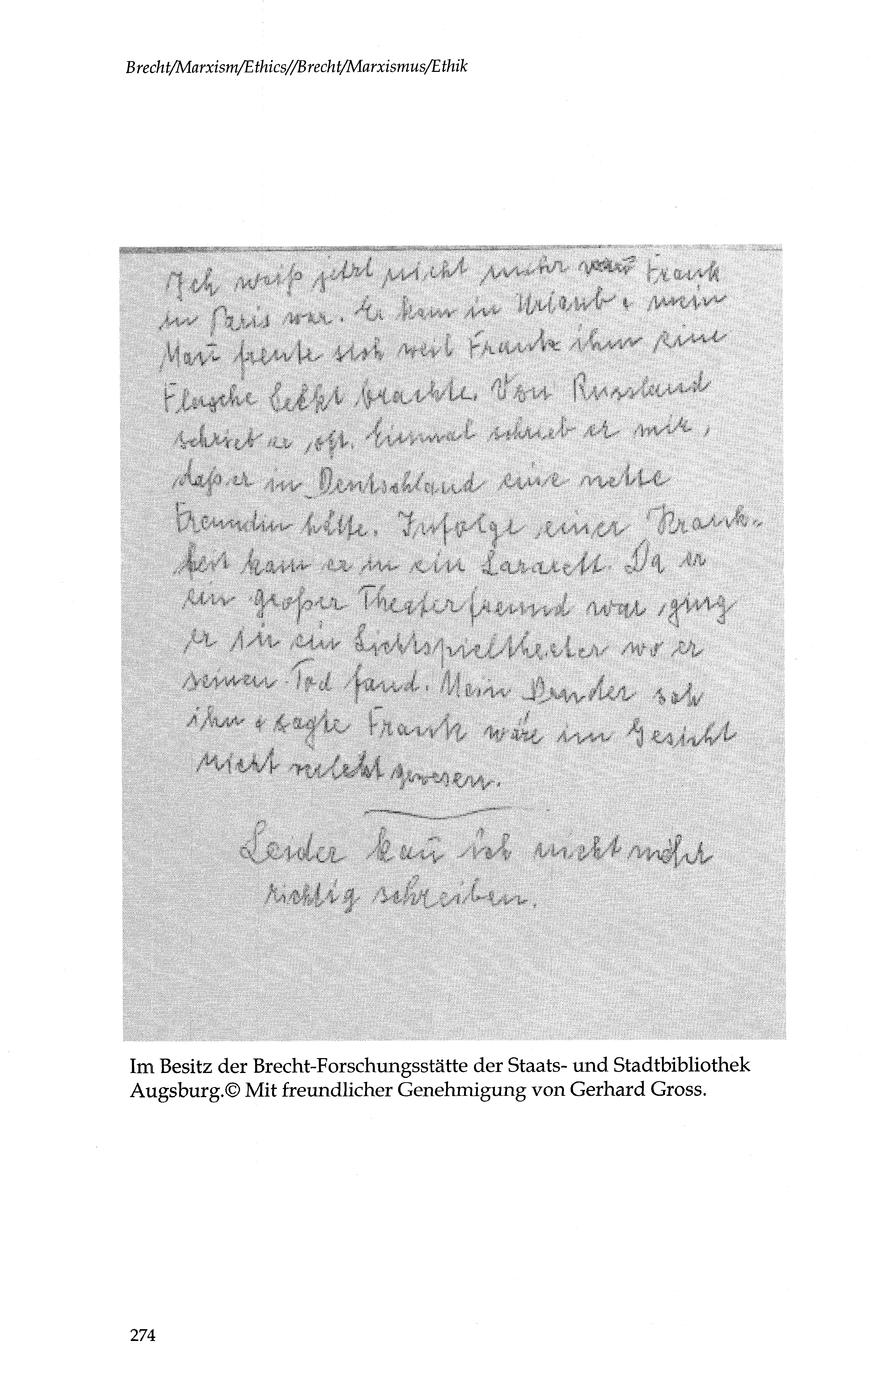 Brecht/Marxism/Ethics//Brecht/Marxismus/Ethik
Ich weiß jetzt nicht mehr wan̄ Frank
in Paris war. Er kam in Urlaub + mein
Man̄ freute sich weil Frank ihm eine
Flasche Sekt brachte. Von Russland
schrieb er oft. Einmal schrieb er mir,
daß er in Deutschland eine nette
Freundin hätte. Infolge einer Krank-
heit kam er in ein Lazarett. Da er
ein großer Theaterfreund war, ging
er in ein Lichtspieltheater wo er
seinen Tod fand. Mein Bruder sah
ihn + sagte Frank wäre im Gesicht
nicht verletzt gewesen.
Leider kan̄ ich nicht mehr
richtig schreiben.
Im Besitz der Brecht-Forschungsstätte der Staats- und Stadtbibliothek
Augsburg.© Mit freundlicher Genehmigung von Gerhard Gross.
274